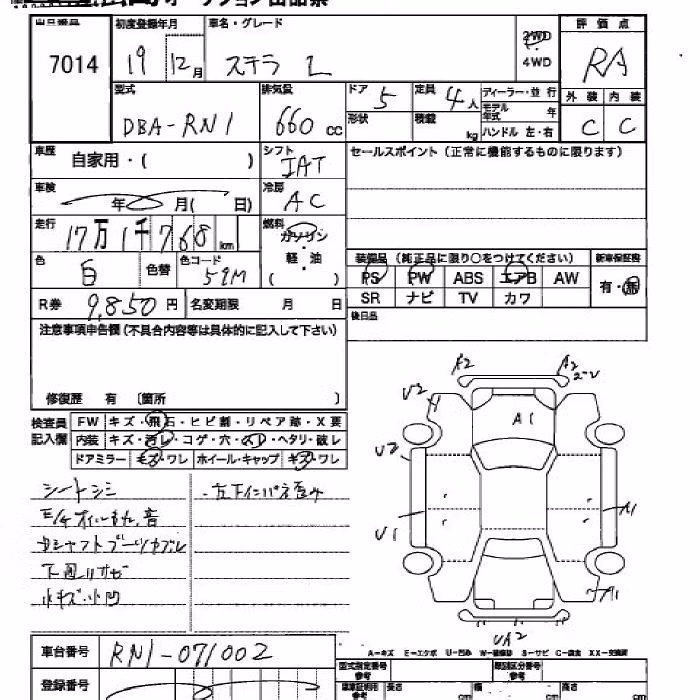 オークション出品票
出品番号 初度登録年月 車名・グレード 2WD 評価点
7014 19 12月 ステラ L 4WD RA
型式 排気量 ドア 5 定員 4人 ディーラー・並行 外装 内装
DBA-RN1 660cc 形状 積載 kg モデル年式 年 C C
ハンドル 左・右
車歴 自家用・( ) シフト IAT セールスポイント (正常に機能するものに限ります)
車検 年 月( 日) 冷房 AC
走行 17万1千768km 燃料 ガソリン
軽・油
( )
色 白 色替 色コード 59M 装備品 (純正品に限り○をつけてください) 新車保証書
PS PW ABS エアB AW 有・無
R券 9,850円 名変期限 月 日 SR ナビ TV カワ
注意事項申告欄 (不具合内容等は具体的に記入して下さい) 後日品
修復歴 有 〔箇所
検査員記入欄 FW キズ・飛石・ヒビ割・リペア跡・X要
内装 キズ・汚レ・コゲ・穴・スレ・ヘタリ・破レ
ドアミラー キズ・ワレ ホイール・キャップ キズ・ワレ
シートシミ
下廻りサビ
小キズ・小凹
A2 A2
U2 A1
U2
U1 A1
A1
UA2
車台番号 RN1-071002
A-キズ E-エクボ U-凹み W-補修跡 S-サビ C-腐食 XX-交換済
登録番号 型式指定番号 類別区分番号
車庫証明用参考 長さ cm 幅 cm 高さ cm